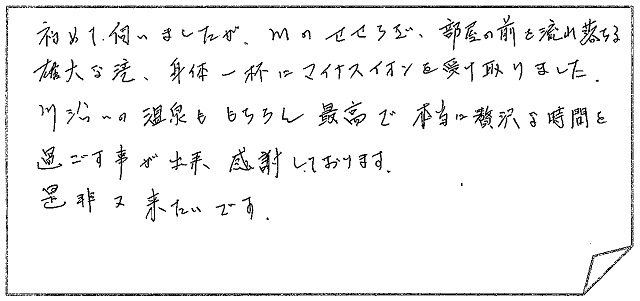 初めて伺いましたが、川のせせらぎ、部屋の前を流れ落ちる
雄大な滝、身体一杯にマイナスイオンを受け取りました。
川沿いの温泉ももちろん最高で本当に贅沢な時間を
過ごす事が出来、感謝しております。
是非又来たいです。